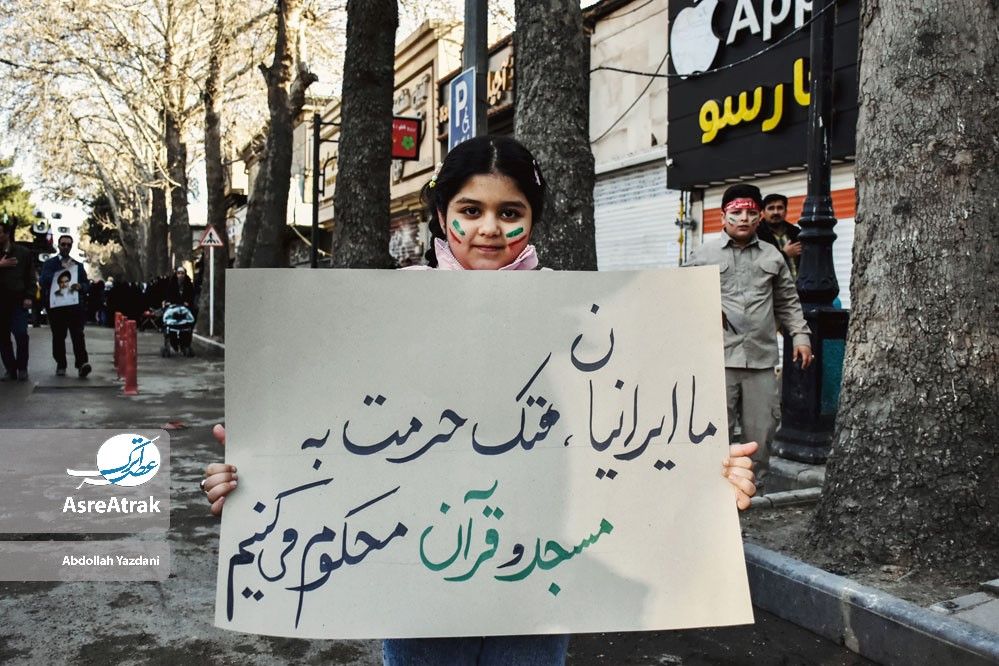 App
پارسو
P
ما ایرانیان، هتک حرمت به
مسجد و قرآن محکوم می کنیم
عصر اترک
AsreAtrak
Abdollah Yazdani